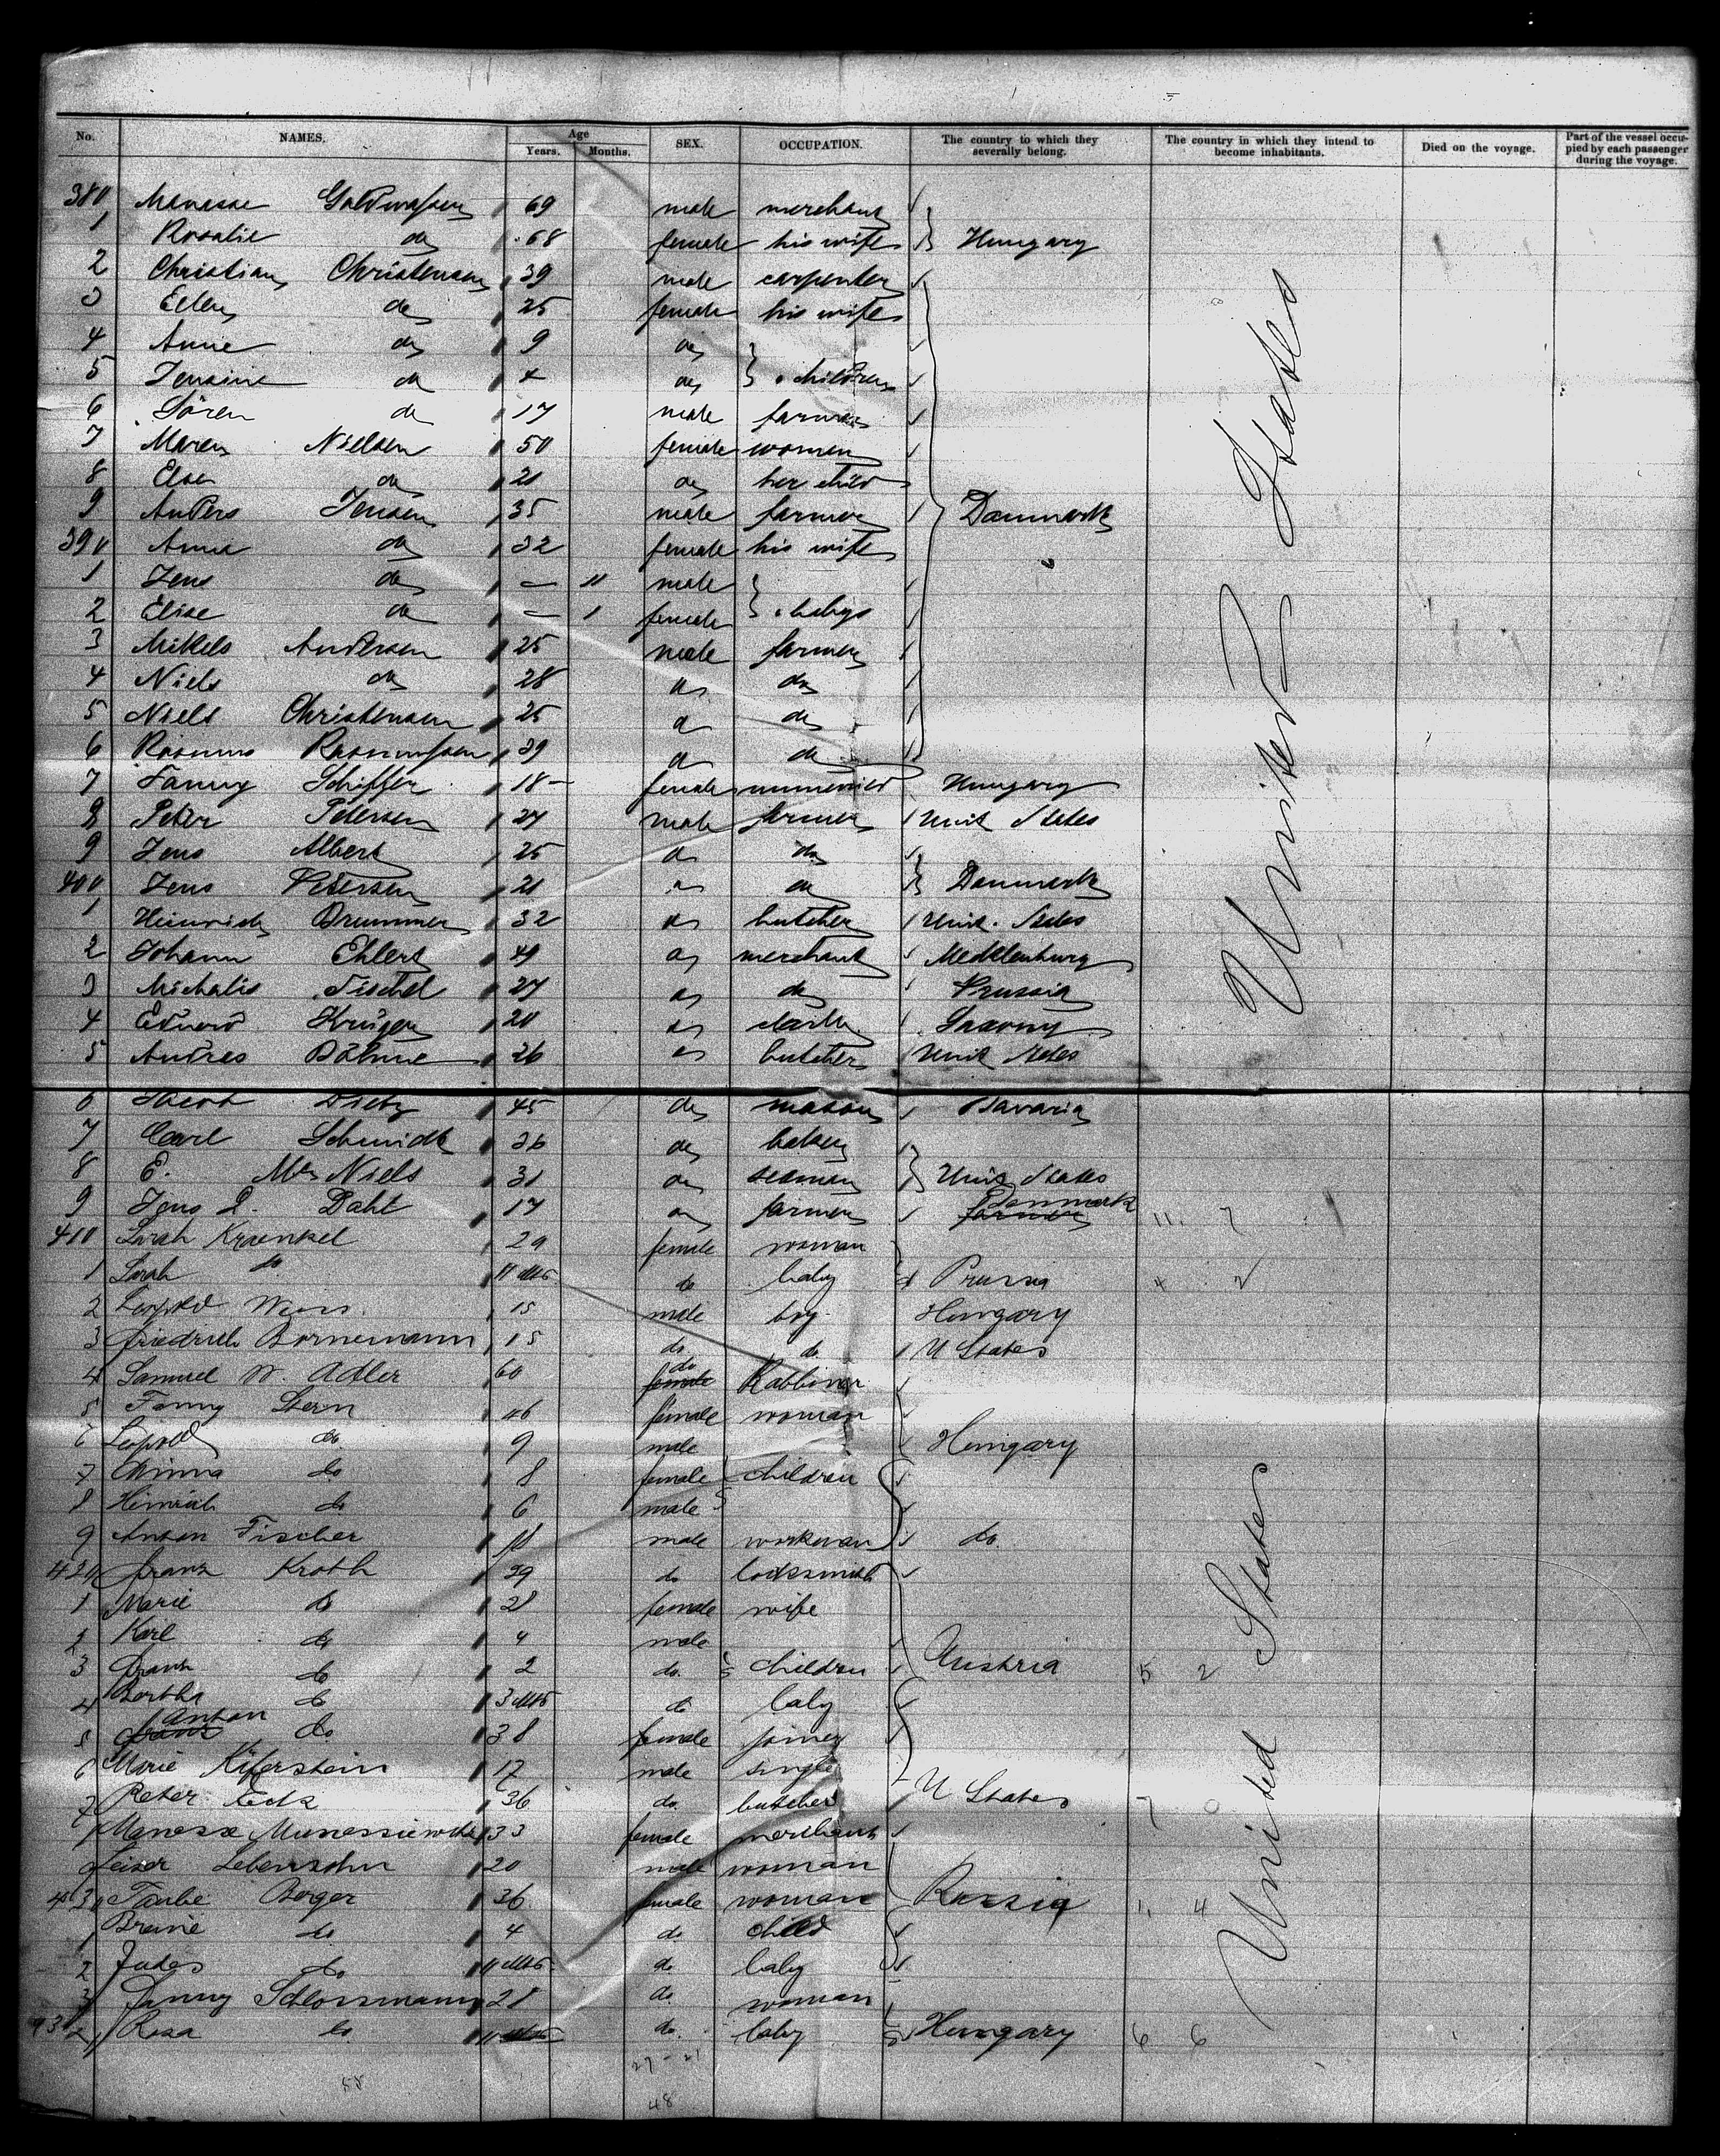 No. NAMES. Age Years. Months. SEX. OCCUPATION. The country to which they severally belong. The country in which they intend to become inhabitants. Died on the voyage. Part of the vessel occupied by each passenger during the voyage.
380 Manasse 69 male merchant
1 Rosalie do 68 female his wife Hungary
2 Christian Christensen 39 male carpenter
3 Ellen do 25 female his wife
4 Anne do 9 do
5 Jensine do 4 do children
6 Sören do 17 male farmer
7 Maren Nielsen 50 female women
8 Else do 20 do her child
9 Anders Jensen 35 male farmer Danmark
390 Anna do 32 female his wife
1 Jens do — 11 male
2 Elise do — 1 female babys
3 Mikels Andersen 25 male farmer
4 Niels do 28 do do
5 Niels Christensen 25 do do
6 Rasmus Rasmussen 39 do do
7 Fanny Schiffer 18 female Hungary
8 Peter Petersen 27 male farmer Unit States
9 Jens Albert 25 do do
400 Jens Petersen 20 do do Danmark
1 Heinrich Brummer 32 do butcher Unit. States
2 Johann Ehlert 49 do merchant Mecklenburg
3 Michalis Fischel 27 do do Prussia
4 Eduard Krüger 20 do clerk Saxony
5 Andres Böhme 26 do butcher Unit States
United States
6 Dietz 45 do mason Bavaria
7 Carl Schmidt 36 do baker
8 E. Mc Niels 31 do seaman Unit States
9 Jens P. Dahl 17 do farmer farmer Denmark 11. 7
410 Sarah Kraenkel 29 female woman
1 Sarah do 11 Mts do baby Prussia 4 2
2 Leopold Weiss. 15 male boy Hungary
3 Friedrich Bornemann 15 do do U States
4 Samuel W. Adler 60 female do Rabbiner
5 Fanny Stern 46 female woman
6 Leopold do 9 male Hungary
7 do 8 female children
8 Heinrich do 6 male
9 Anton Fischer male workman do.
420 Franz Kroth 29 do locksmith
1 Marie do 28 female wife
2 Karl do 4 male
3 Franz do 2 do. children Austria 5 2
4 Bertha do 3 Mts do baby
5 Franz Anton do 38 female joiner
6 Marie Kiferstein 17 male single
7 Peter 36 do. butcher U States 7 0
Manasse 33 female merchant
9 Leiser Lebensohn 20 male woman
430 Taube Berger 36 female woman Russia 11 4
1 do 4 do. child
2 Judes do 11 Mts do baby
3 Fanny Schlossmann 28 do. woman
Rosa do 11 Mts do. baby Hungary 6 6
United States
27 - 21
55
48